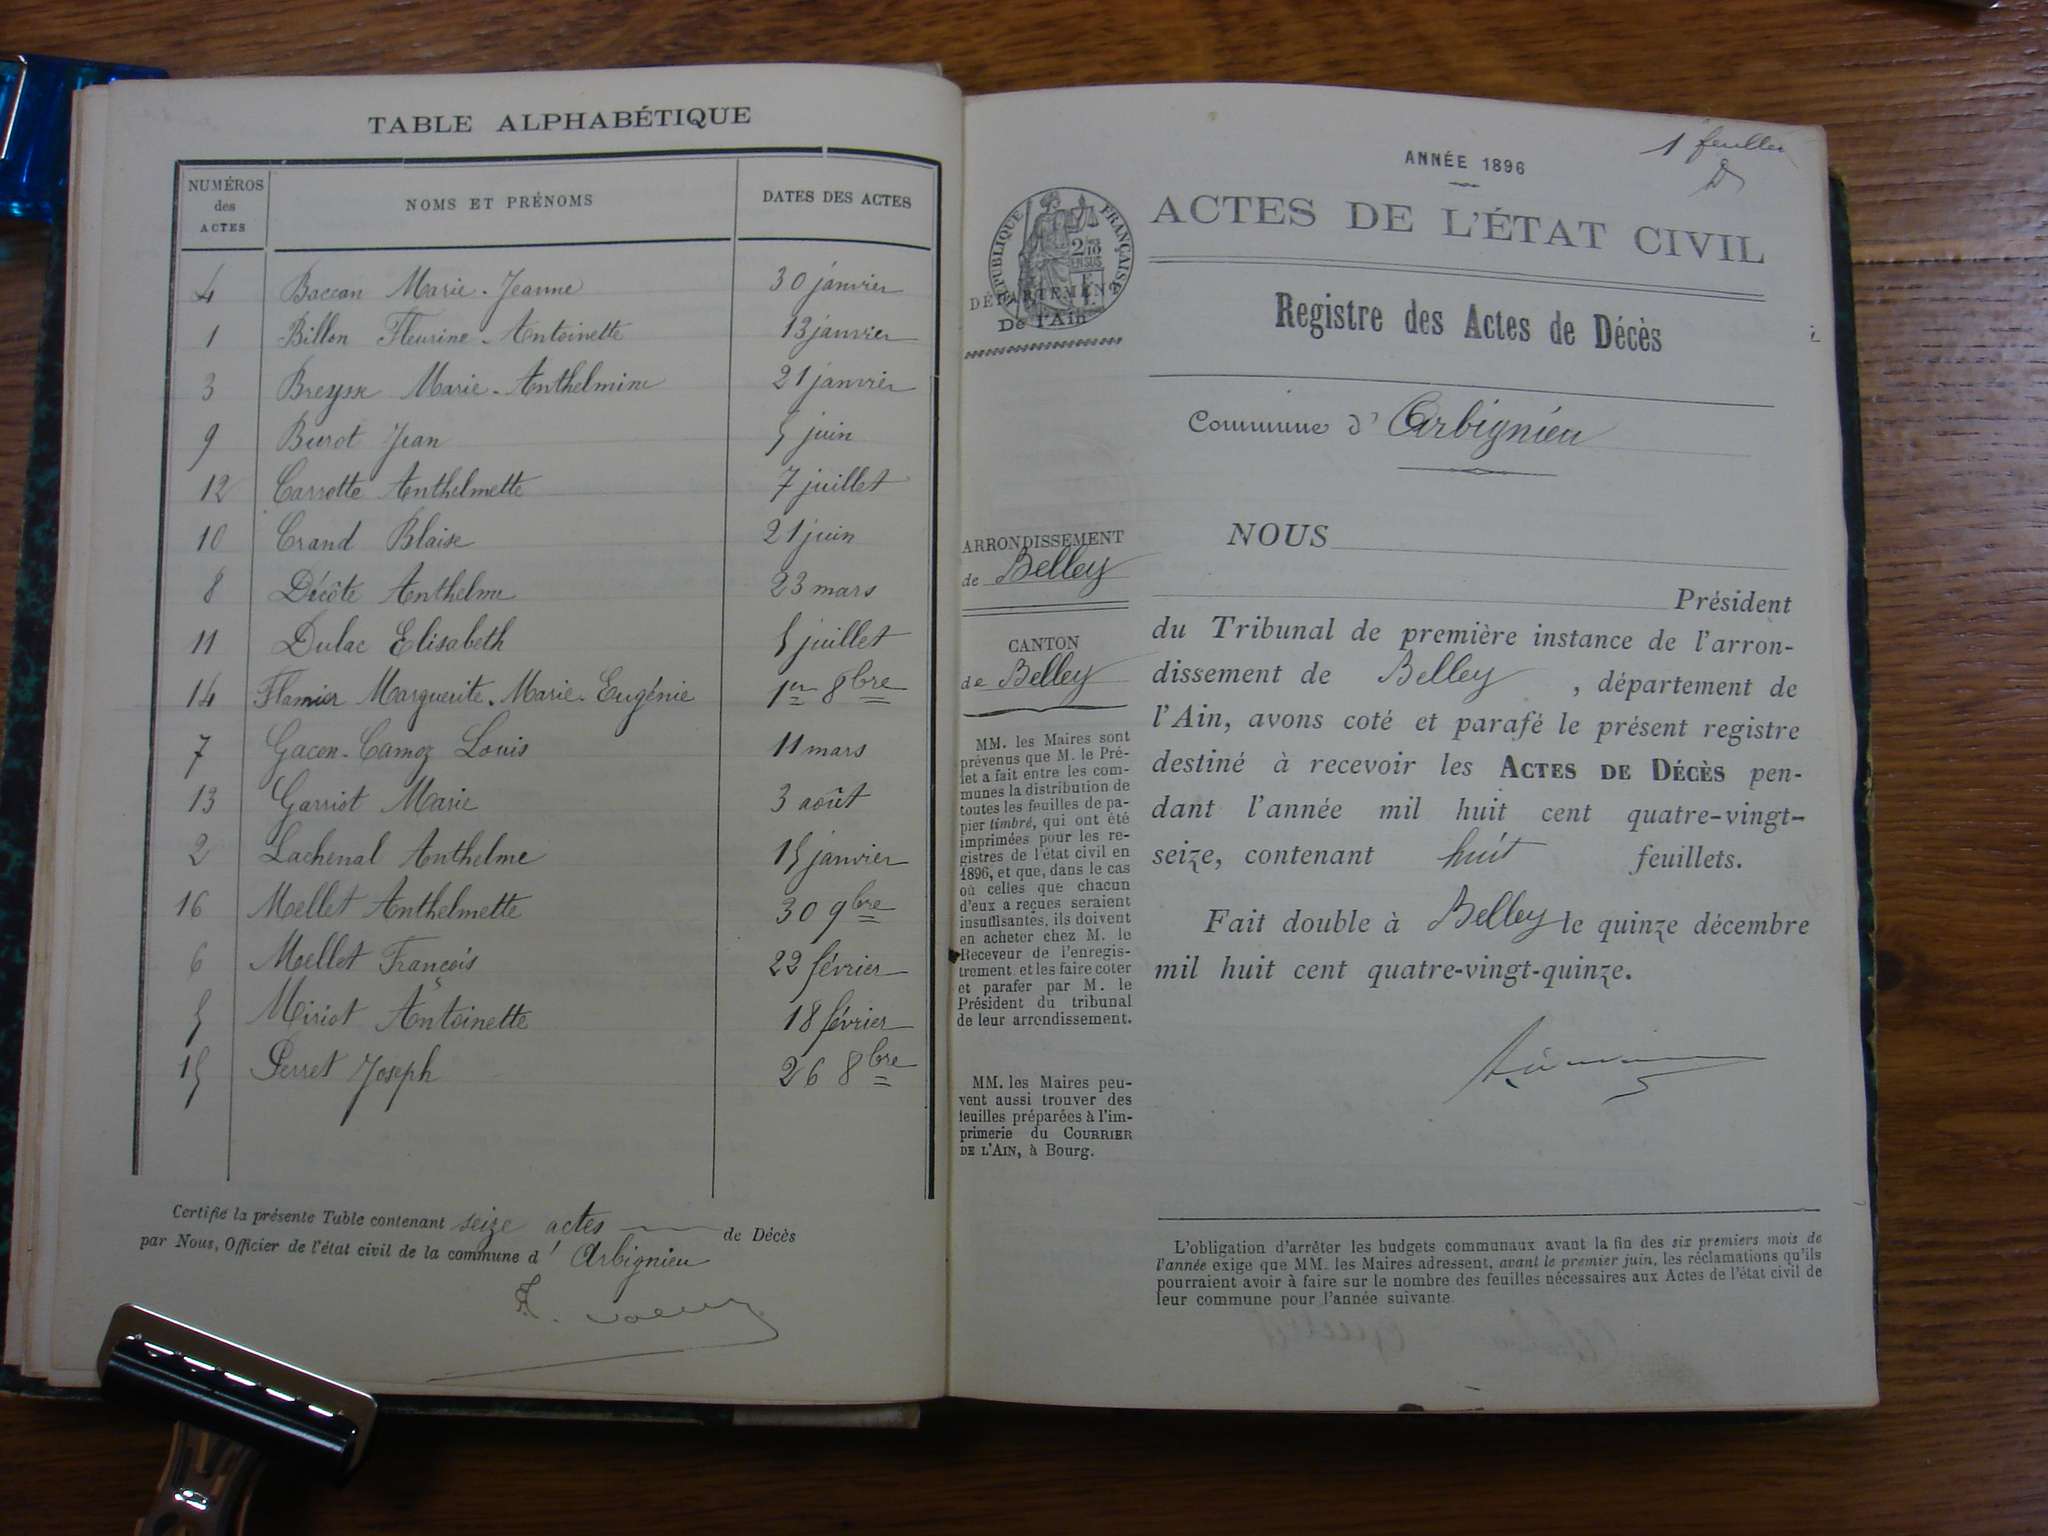 TABLE ALPHABÉTIQUE
NUMÉROS des ACTES NOMS ET PRÉNOMS DATES DES ACTES
4 Baccon Marie-Jeanne 30 janvier
1 Billon Fleurine-Antoinette 13 janvier
3 Breysse Marie-Anthelmine 21 janvier
9 Burot Jean 5 juin
12 Carrotte Anthelmette 7 juillet
10 Crand Blaise 21 juin
8 Décôte Anthelme 23 mars
11 Dulac Elisabeth 5 juillet
14 Flamier Marguerite-Marie-Eugénie 1er 8bre
7 Gacon-Camoz Louis 11 mars
13 Garriot Marie 3 août
2 Lachenal Anthelme 15 janvier
16 Mellet Anthelmette 30 9bre
6 Mellet François 22 février
5 Miriot Antoinette 18 février
15 Perret Joseph 26 8bre
Certifié la présente Table contenant seize actes de Décès
par Nous, Officier de l'état civil de la commune d' Arbignieu
1 feuillet
ANNÉE 1896
ACTES DE L'ÉTAT CIVIL
RÉPUBLIQUE FRANÇAISE
DÉPARTEMENT
De l'Ain
Registre des Actes de Décès
Commune d' Arbignieu
ARRONDISSEMENT
de Belley
CANTON
de Belley
MM. les Maires sont
prévenus que M. le Pré-
fet a fait entre les com-
munes la distribution de
toutes les feuilles de pa-
pier timbré, qui ont été
imprimées pour les re-
gistres de l'état civil en
1896, et que, dans le cas
où celles que chacun
d'eux a reçues seraient
insuffisantes, ils doivent
en acheter chez M. le
Receveur de l'enregis-
trement et les faire coter
et parafer par M. le
Président du tribunal
de leur arrondissement.
MM. les Maires peu-
vent aussi trouver des
feuilles préparées à l'im-
primerie du COURRIER
DE L'AIN, à Bourg.
NOUS
Président
du Tribunal de première instance de l'arron-
dissement de Belley, département de
l'Ain, avons coté et parafé le présent registre
destiné à recevoir les ACTES DE DÉCÈS pen-
dant l'année mil huit cent quatre-vingt-
seize, contenant huit feuillets.
Fait double à Belley le quinze décembre
mil huit cent quatre-vingt-quinze.
L'obligation d'arrêter les budgets communaux avant la fin des six premiers mois de
l'année exige que MM. les Maires adressent, avant le premier juin, les réclamations qu'ils
pourraient avoir à faire sur le nombre des feuilles nécessaires aux Actes de l'état civil de
leur commune pour l'année suivante.